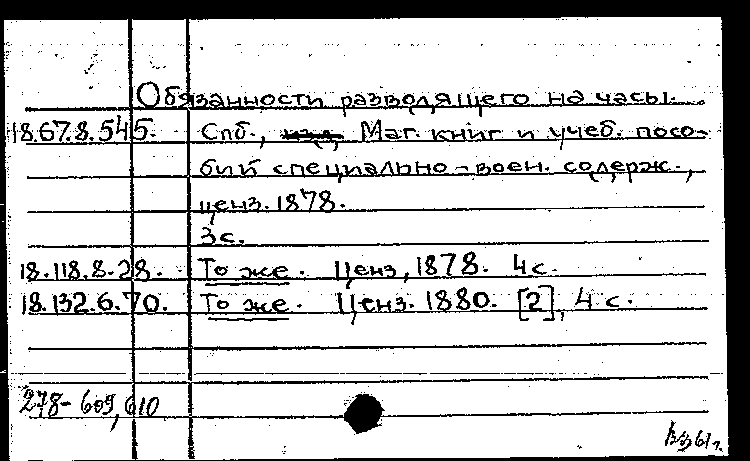 Обязанности разводящего на часы.
18.67.8.545. Спб., Маг. книг и учеб. посо-
бий специально-воен. содерж.,
ценз. 1878.
3 с.
18.118.8.28. То же. Ценз, 1878. 4 с.
18.132.6.70. То же. Ценз. 1880. [2], 4 с.
278-609, 610
61 г.